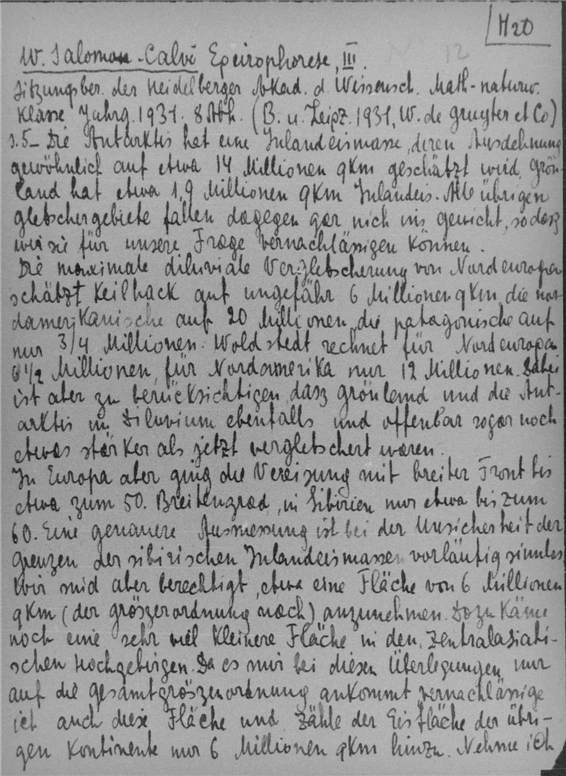 H20
12
W. Salomon-Calvi Epeirophorese, III.
Sitzungsber. der Heidelberger Akad. d. Wissensch. Math-naturw.
Klasse Jahrg. 1931. 8 Abh. (B. u. Leipz. 1931, W. de Gruyter et Co)
s.5_ Die Antarktis hat eine Inlandeismasse, deren Ausdehnung
gewöhnlich auf etwa 14 Millionen qKm geschätzt wird, Grön-
land hat etwa 1,9 Millionen qKm Inlandeis. Alle übrigen
gletschergebiete fallen dagegen gar nich ins gewicht, sodasz
wir sie für unsere Frage vernachlässigen können.
Die maximale diluviale Vergletscherung von Nordeuropa
schätzt Keilhack auf ungefähr 6 Millionen qKm, die nor
damerikanische auf 20 Millionen, die patagonische auf
nur 3/4 Millionen. Woldstedt rechnet für Nordeuropa
6 1/2 Millionen, für Nordamerika nur 12 Millionen. Dabei
ist aber zu berücksichtigen, dasz grönland und die Ant-
arktis im Diluvium ebenfalls und offenbar sogar noch
etwas stärker als jetzt vergletschert waren.
In Europa aber ging die Vereisung mit breiter Front bis
etwa zum 50. Breitengrad, in Sibirien nur etwa bis zum
60. Eine genauere Ausmessung ist bei der Unsicherheit der
grenzen der sibirischen Inlandeismassen vorläufig sinnlos
Wir sind aber berechtigt, etwa eine Fläche von 6 Millionen
qKm (der gröszenordnung nach) anzunehmen. Dazu käme
noch eine sehr viel kleinere Fläche in den zentralasiati-
schen Hochgebirgen. Da es mir bei diesen Überlegungen nur
auf die gesamtgröszenordnung ankommt, vernachlässige
ich auch diese Fläche und zähle der Eisfläche der übri-
gen Kontinente nur 6 Millionen qKm hinzu. Nehme ich